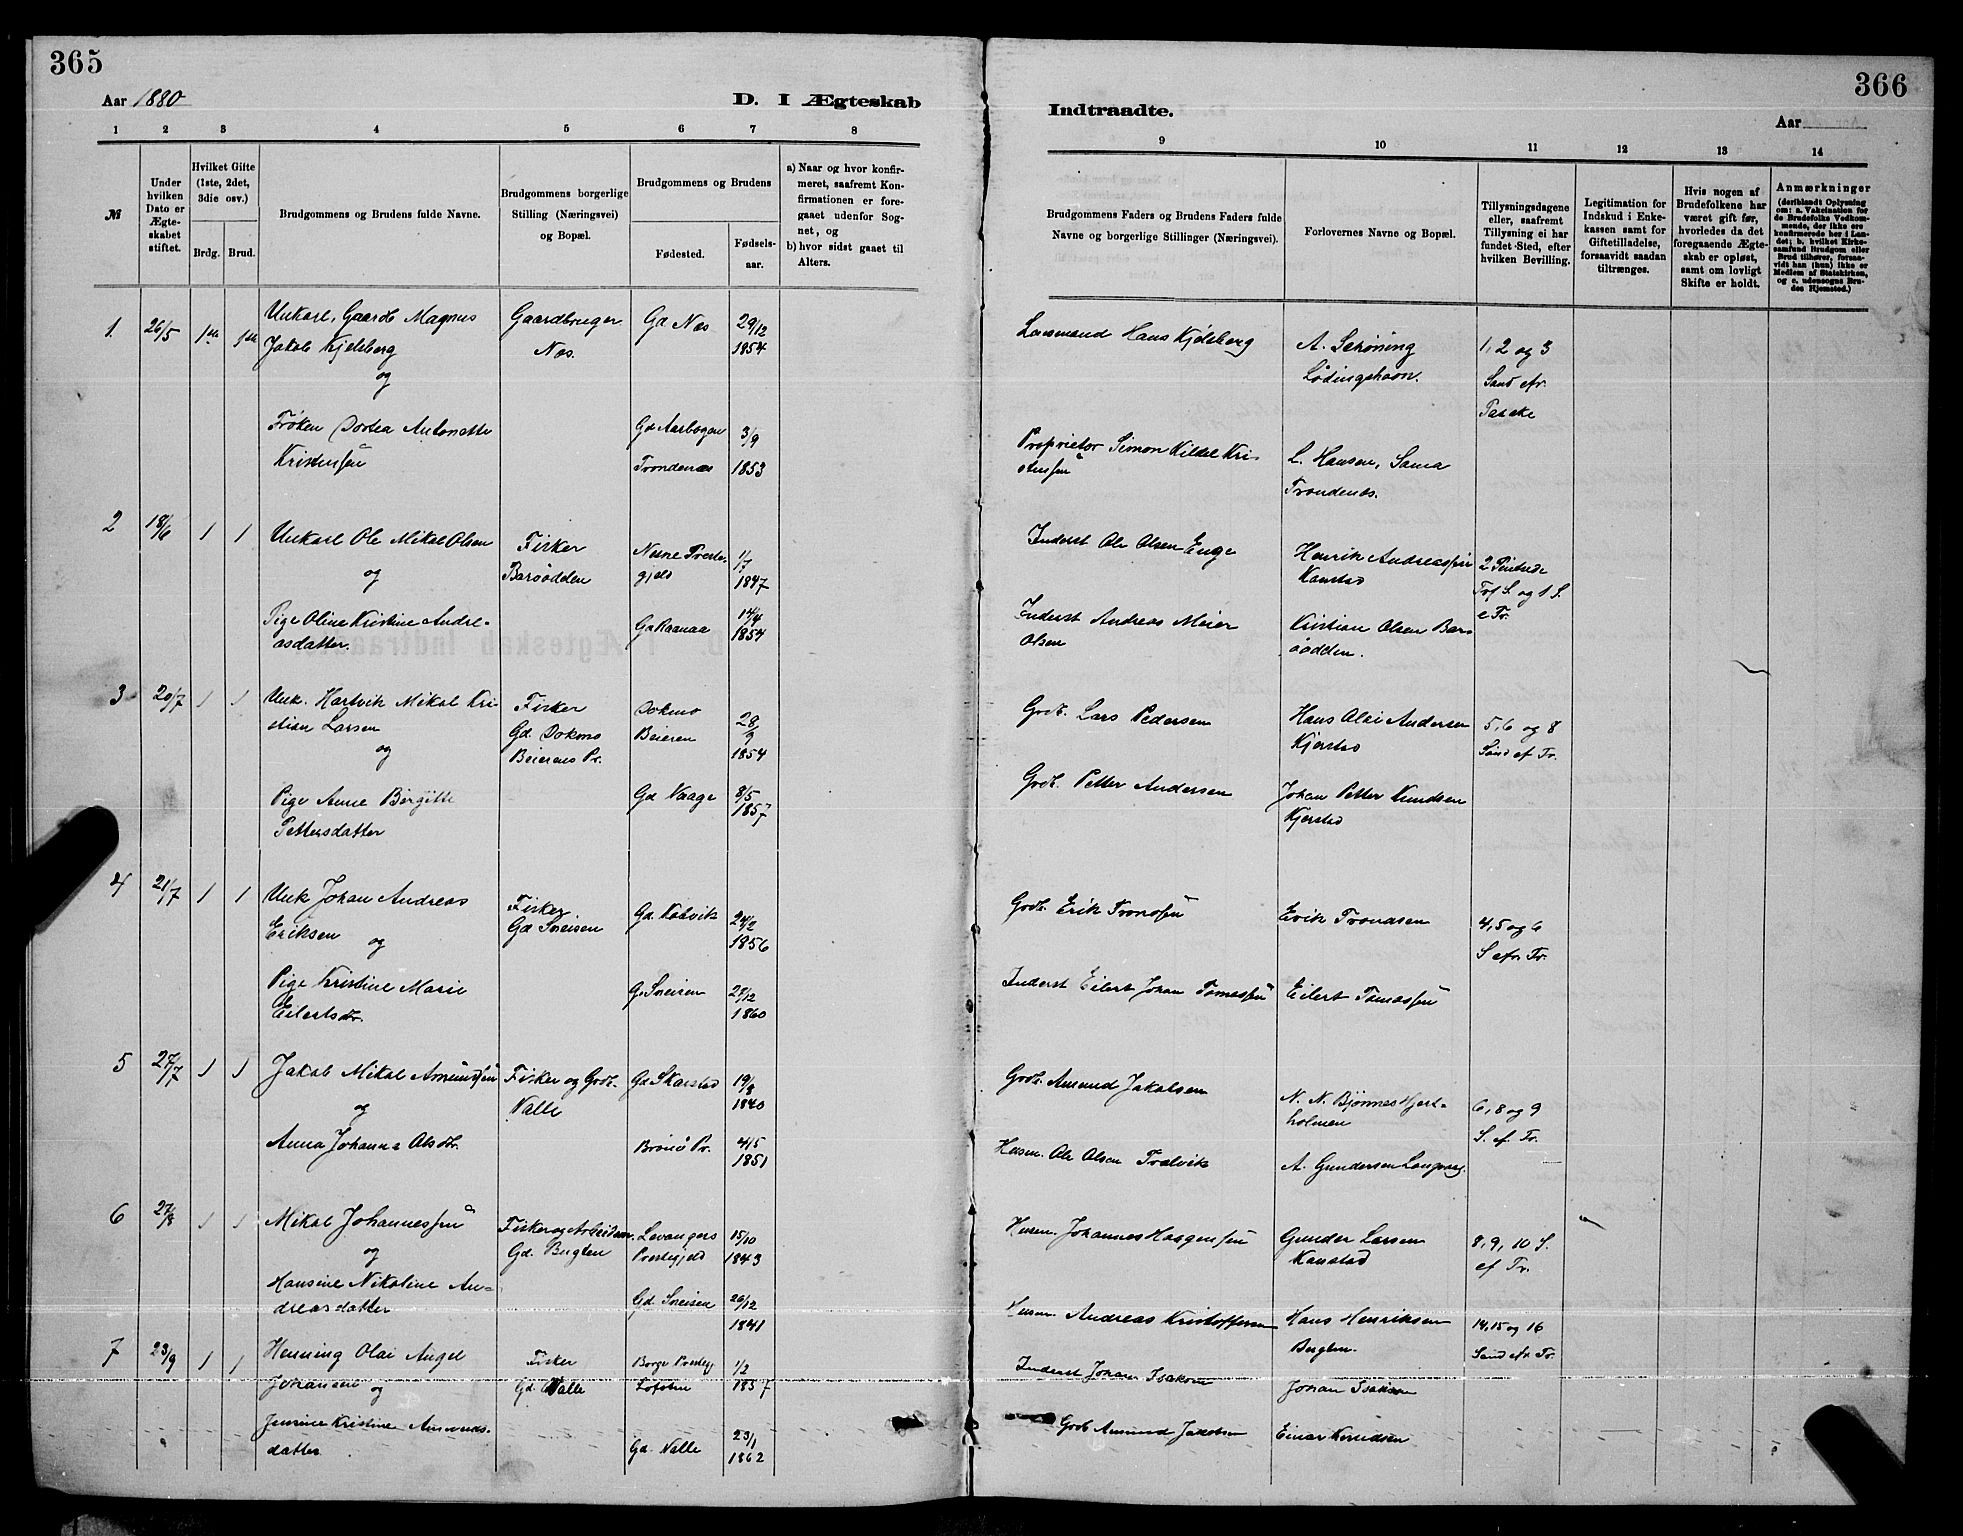 365
Aar 1880
D. I Ægteskab
1 2 3 4 5 6 7 8
№
Under hvilken Dato er Ægteskabet stiftet.
Hvilket Gifte (1ste, 2det, 3die osv.)
Brdg. Brud.
Brudgommens og Brudens fulde Navne.
Brudgommens borgerlige Stilling (Næringsvei) og Bopæl.
Brudgommens og Brudens
Fødested.
Fødsels-aar.
a) Naar og hvor konfir-
meret, saafremt Kon-
firmationen er fore-
gaaet udenfor Sog-
net, og
b) hvor sidst gaaet til
Alters.
1. 26/5 1ste 1ste
Unkarl, Gaardb Magnus
Jakob Kjelsberg
og
Gaardbruger
Næs.
Gd Næs
29/12
1854
Frøken Dortea Antonette
Kristensen
Gd Aarbogen
Trondenæs
3/9
1853
2 18/6 1 1
Unkarl Ole Mikal Olsen
og
Fisker
Barsødden
Nesne Præste-
gjeld
1/7
1847
Pige Oline Kristine Andre-
asdatter.
Gd Raanaa
14/4
1854
3 20/7 1 1
Unk. Hartvik Mikal Kri-
stian Larsen
og
Fisker
Gd. Dokmo
Beierens Pr.
Dokmo
Beieren
28/9
1854
Pige Anne Bergitte
Pettersdatter
Gd Vaage
8/5
1857
4 21/7 1 1
Unk Johan Andreas
Eriksen
og
Fisker
Gd Sneisen
Gd. Kobvik
24/2
1856
Pige Kristine Marie
Eilertsdtr.
Gd Sneisen
27/12
1860
5 27/7 1 1
Jakob Mikal Amundsen
og
Fisker og Grdb.
Valle
Gd Skarstad
19/8
1840
Anna Johanna Olsdtr.
Brønø Pr.
4/5
1851
6 27/8 1 1
Mikal Johannessen
og
Fisker og Arbeidsm.
Gd. Bugten
Levangers
Prestegjeld
15/10
1843
Hansine Nikoline An-
dreasdatter
Gd. Sneisen
26/12
1841
7 23/9 1 1
Henning Olai Angel
Johansen og
Fisker
Gd. Valle
Borge Prestegj
Lofoten
1/2
1857
Jensine Kristine Amunds-
datter
Gd. Valle
23/1
1862
366
Indtraadte.
Aar
9 10 11 12 13 14
Brudgommens Faders og Brudens Faders fulde
Navne og borgerlige Stillinger (Næringsvei).
Forlovernes Navne og Bopæl.
Tillysningsdagene
eller, saafremt
Tillysning ei har
fundet Sted, efter
hvilken Bevilling.
Legitimation for
Indskud i Enke-
kassen samt for
Giftetilladelse,
forsaavidt saadan
tiltrænges.
Hvis nogen af
Brudefolkene har
været gift før,
hvorledes da det
foregaaende Ægte-
skab er opløst,
samt om lovligt
Skifte er holdt.
Anmærkninger
(deriblandt Oplysning
om: a. Vakcination for
de Brudefolks Vedkom-
mende, der ikke ere
konfirmerede her i Lan-
det; b. hvilket Kirke-
samfund Brudgom eller
Brud tilhører, forsaa-
vidt han (hun) ikke er
Medlem af Statskirken,
og c. udensogns Bru-
des Hjemsted.)
Lensmand Hans Kjelsberg
A. Schøning
Lødingshavn.
1, 2 og 3
Sønd efr.
Paaske
Proprietor Simon Kildal Kri-
stensen
L. Hansen, Sama
Trondenæs.
Inderst Ole Olsen Enge
Henrik Andreassen
Kanstad
2 Pintsed
Trf S. og 1 S.
e Tr.
Inderst Andreas Meier
Olsen
Kristian Olsen Bars
ødden.
Grdb. Lars Pedersen
Hans Olai Andersen
Kjerstad
5, 6 og 8
Sønd ef Tr.
Grdb. Petter Andersen
Johan Petter Knudsen
Kjerstad
Grdb. Erik Tronssen
Erik Trondsen
4, 5 og 6
S efr. Tr.
Inderst Eilert Johan Tomassen
Eilert Tomassen
Grdb. Amund Jakobsen
N. N. Bjønnes Hjert-
holmen
6, 8 og 9
S. ef. Tr.
Husm. Ole Olsen Trælvik
A. Gundersen
Husm. Johannes Haagensen
Gunder Larsen
Kanstad
8, 9, 10 S.
ef Tr.
Husm Andreas Kristoffersen
Hans Henriksen
Bugten.
14, 15 og 16
Sønd efr. Tr.
Inderst Johan Isaksen
Johan Isaksen
Grdb Amund Jakobsen
Einar Knudsen